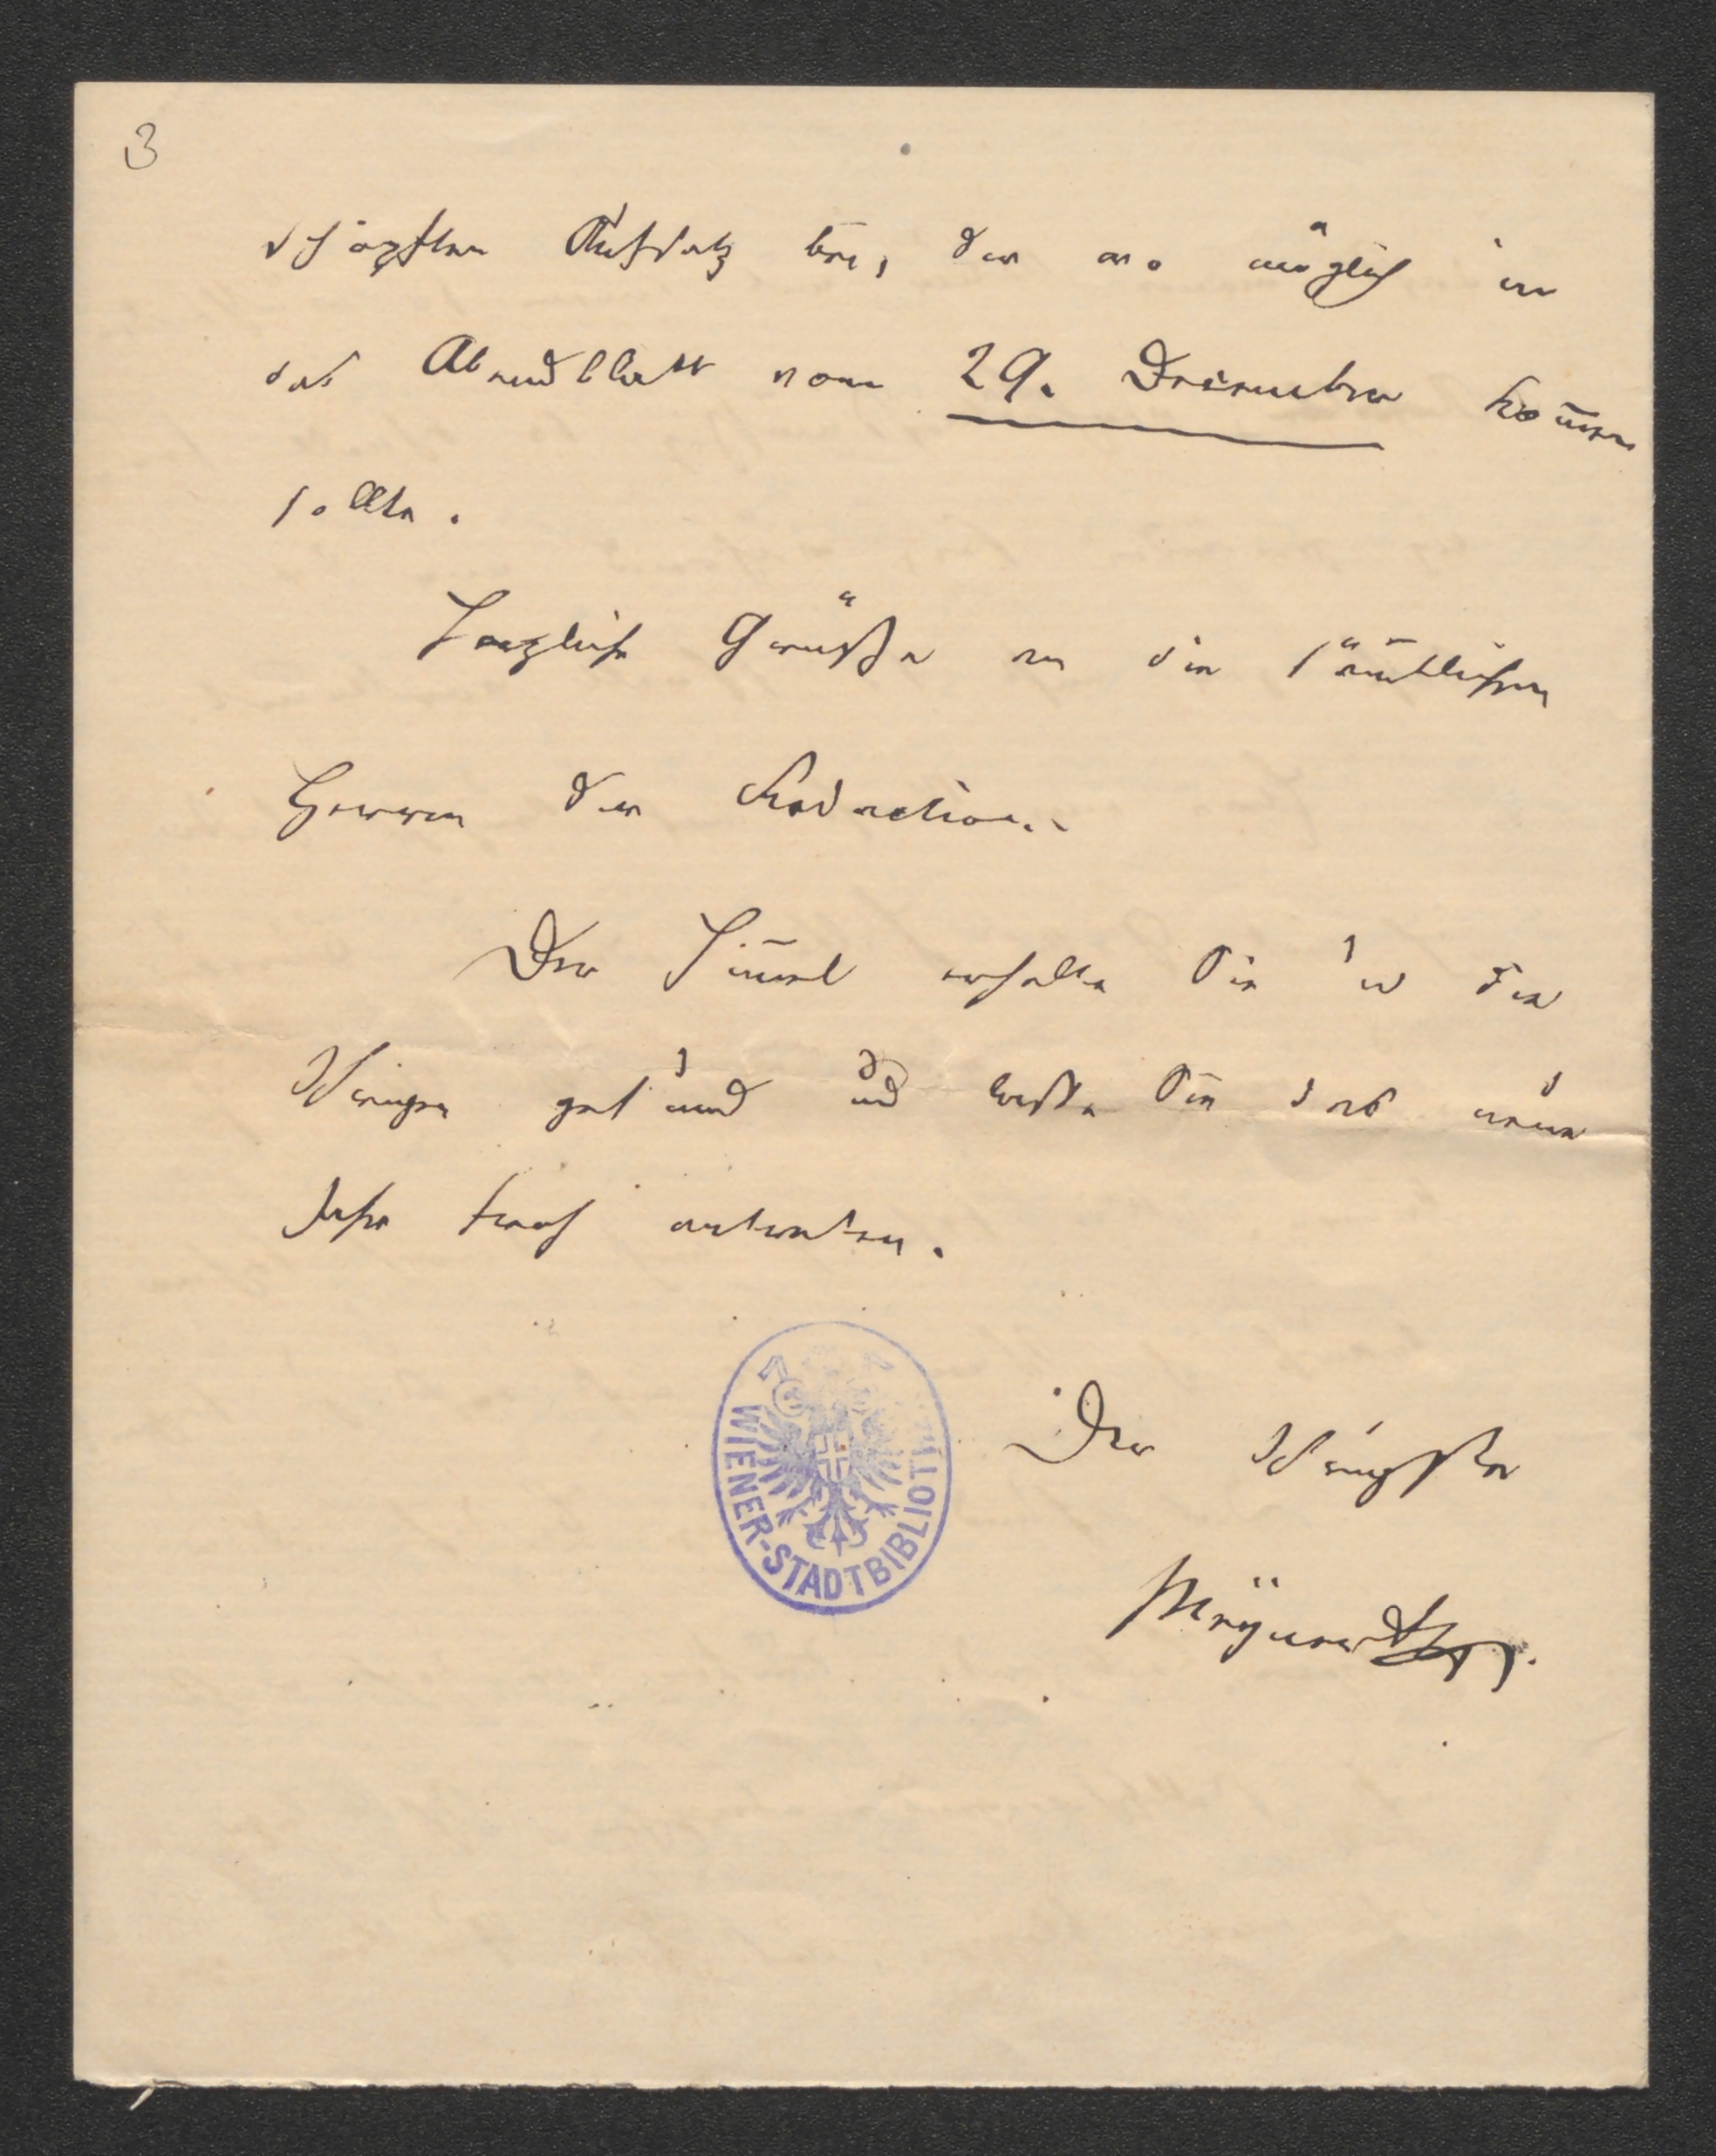 3
schöpften Aufsatz bei, der wo möglich in
das Abendblatt vom 29. December kom̅en
sollte.
Herzliche Grüße an die säm̅tlichen
Herren der Redaction.
Der Him̅el erhalte Sie u die
Ihrigen gesund und laße Sie das neue
Jahr froh antreten.
Der Ihrigste
WIENER-STADTBIBLIOTHEK